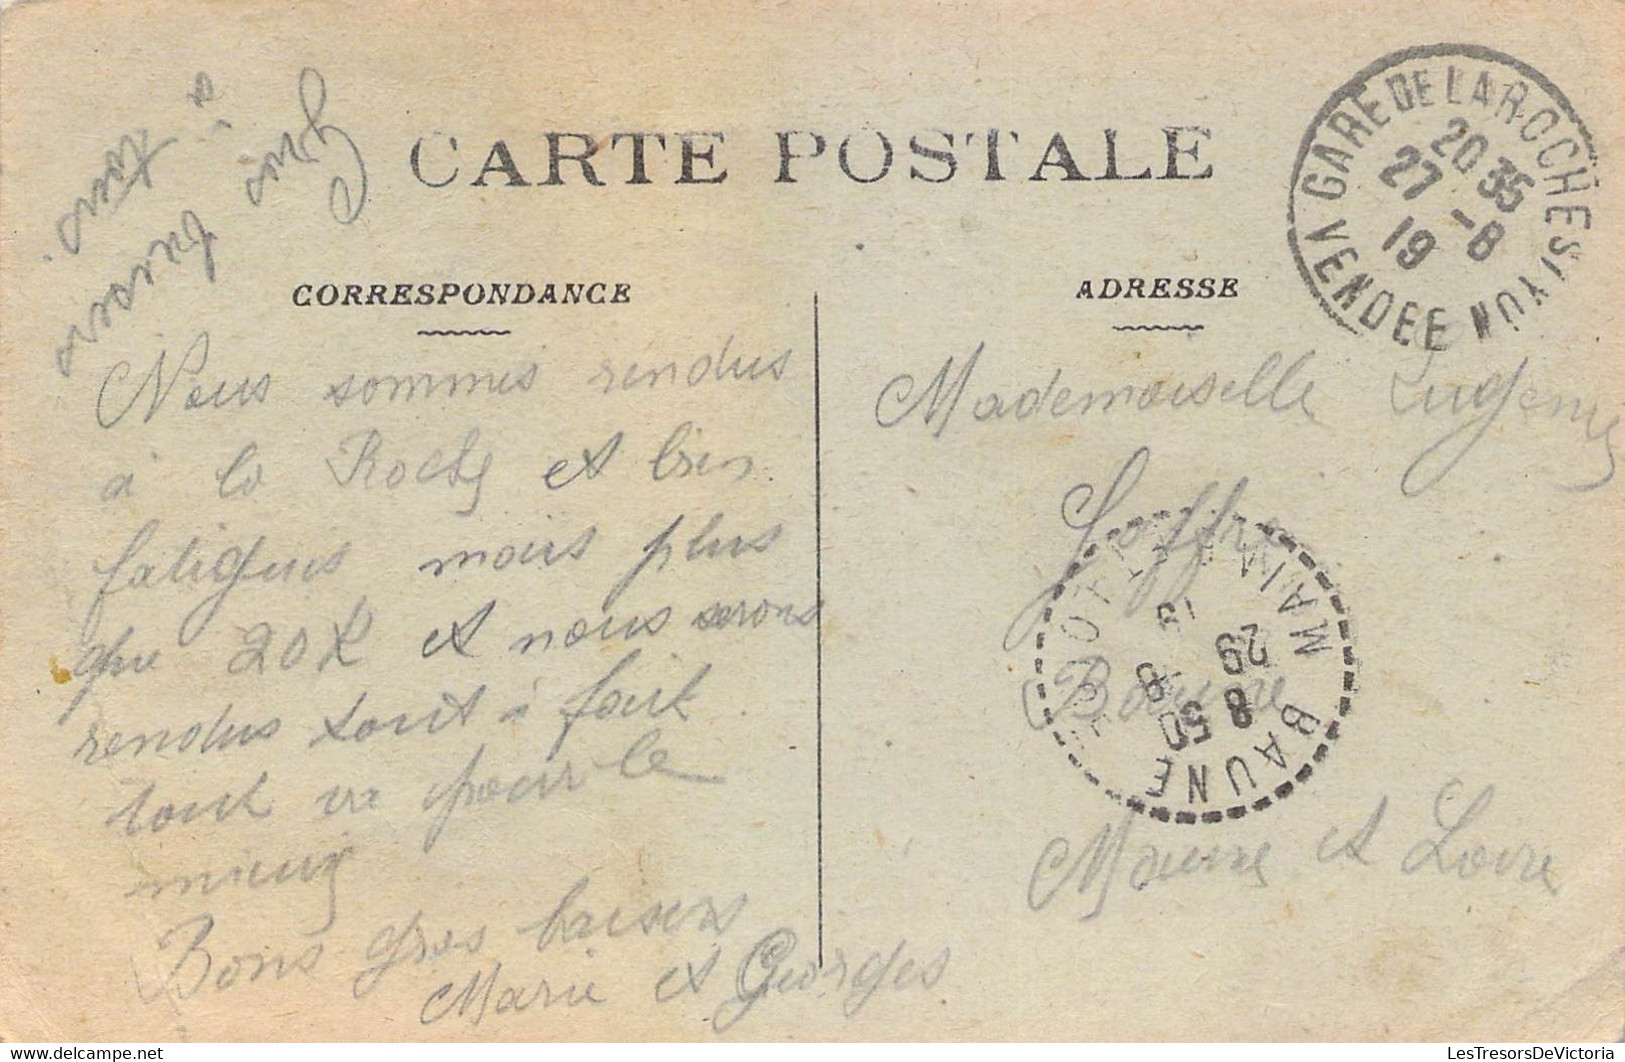 CARTE POSTALE
CORRESPONDANCE
ADRESSE
GARE DE LA ROCHE S/YON
VENDEE
20 35
27 - 8
19
Nous sommes rendus
à la Roche et bien
fatigues mais plus
que 20 K et nous serons
rendus tout à fait
tout va pour le
mieux
Bons gros baisers
Marie et Georges
Mademoiselle Eugenie
Joffre
Baune
Maine et Loire
BAUNE
MAINE
8 50
29
8
19
LesTresorsDeVictoria